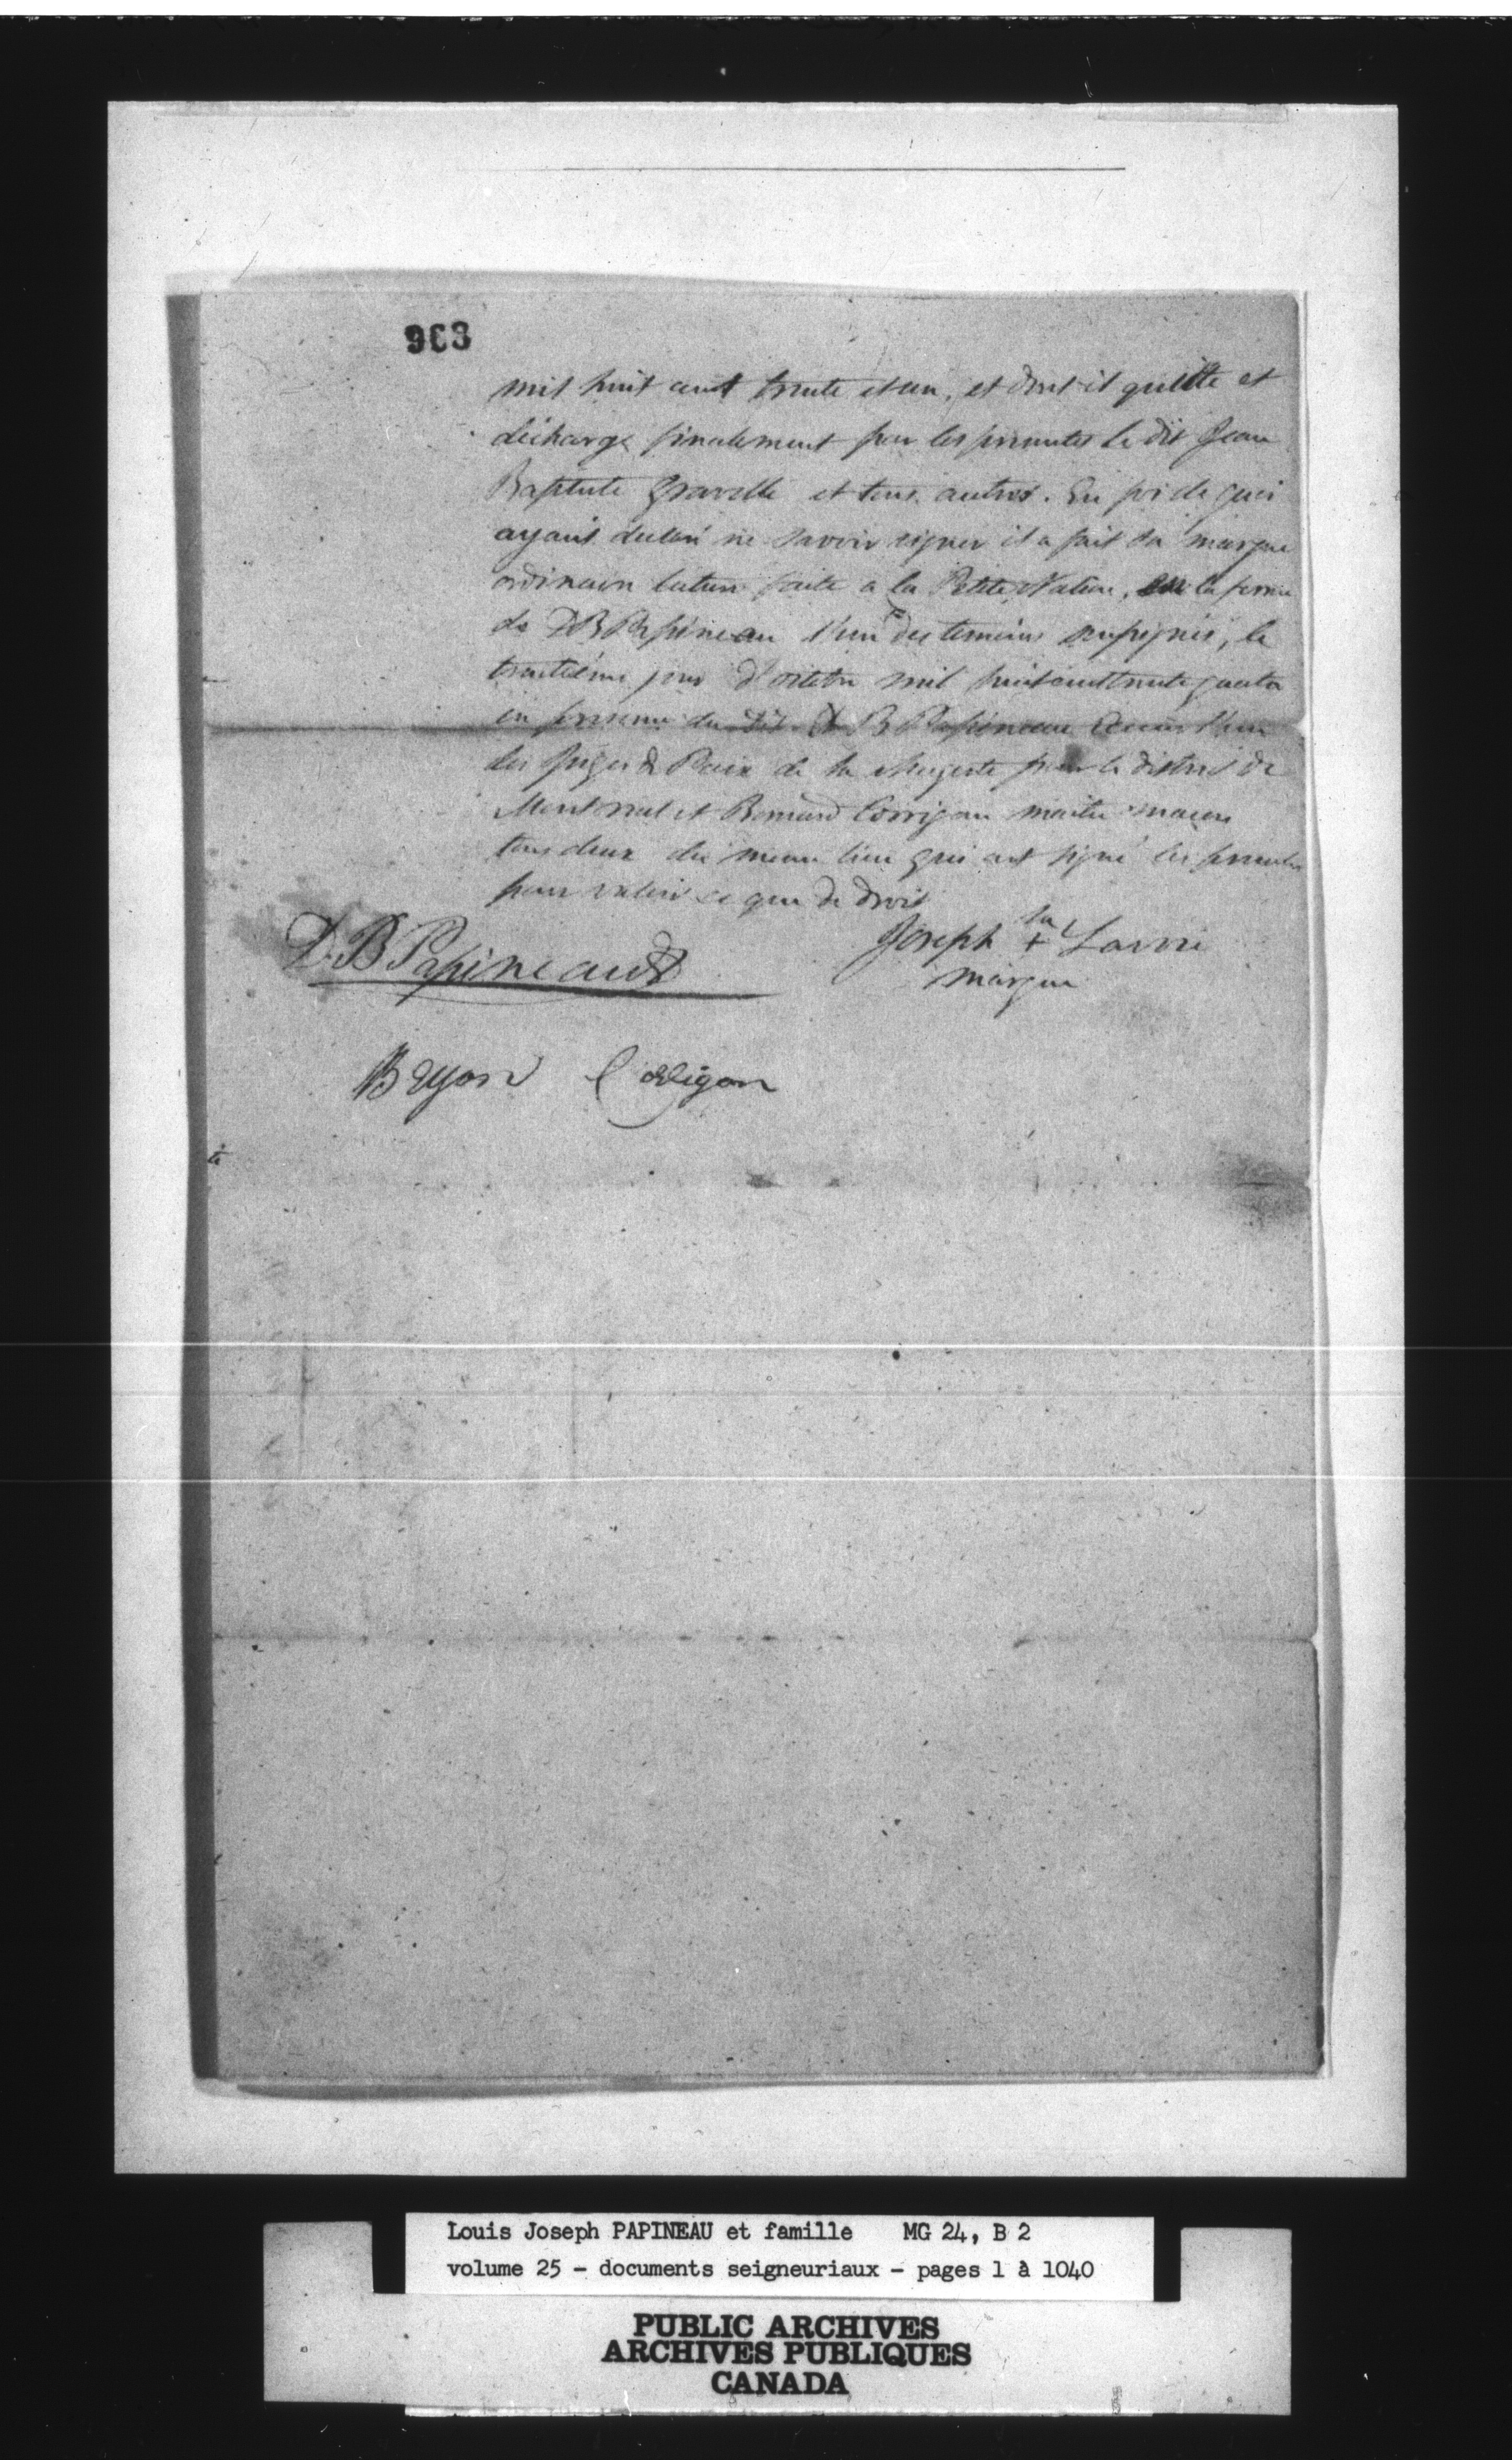 963
mil huit cent trente et un, et dont il quitte et
décharge finalement par les présentes le dit Jean
Baptiste Gravelle et tous autres. En foi de quoi
ayant déclaré ne savoir signer il a fait sa marque
ordinaire lecture faite a la Petite Nation,
de DB Papineau l'un des temoins soussignés, le
trentième jour d'octobre mil huit cent trente quatre
en présence du dit D B Papineau Ecuier l'un
des Juges de Paix de Sa Majesté pour le district de
Montreal et Bernard Corrigan maitre maçon
tous deux du meme lieu qui ont signé les présentes
pour valoir ce que de droit
Joseph + Lavoie
sa
marque
D. B Papineau
Bryan Corrigan
Louis Joseph PAPINEAU et famille MG 24, B 2
volume 25 - documents seigneuriaux - pages 1 à 1040
PUBLIC ARCHIVES
ARCHIVES PUBLIQUES
CANADA